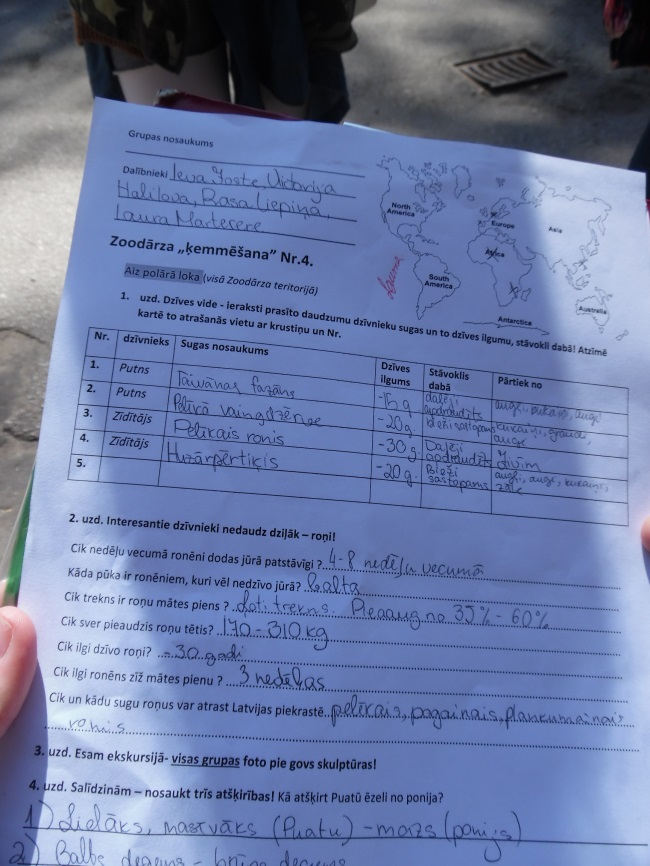 Grupas nosaukums
Dalībnieki Ieva Joste, Victorija
Halilova, Rasa Liepiņa,
Laura Martesere
North America
Europe
Asia
Africa
South America
Australia
Antarctica
Zoodārza „ķemmēšana" Nr.4.
Aiz polārā loka (visā Zoodārza teritorijā)
1. uzd. Dzīves vide - ieraksti prasīto daudzumu dzīvnieku sugas un to dzīves ilgumu, stāvokli dabā! Atzīmē
kartē to atrašanās vietu ar krustiņu un Nr.
Nr. dzīvnieks Sugas nosaukums Dzīves ilgums Stāvoklis dabā Pārtiek no
1. Putns Taivānas fazāns -15 g daļēji apdraudēts
2. Putns Pelēkā vainagdzērve -20g.
3. Zīdītājs Pelēkais ronis -30 g Daļēji apdraudēts zivīm
4. Zīdītājs Huzārpērtiķis -20 g. Bieži sastopams
5.
2. uzd. Interesantie dzīvnieki nedaudz dziļāk – roņi!
Cik nedēļu vecumā ronēni dodas jūrā patstāvīgi ? 4-8 nedēļu vecumā
Kāda pūka ir ronēniem, kuri vēl nedzīvo jūrā? balta
Cik trekns ir roņu mātes piens ? Ļoti trekns. Pieaug no 35% - 60%
Cik sver pieaudzis roņu tētis? 170 - 310 kg
Cik ilgi dzīvo roņi? ~ 30 gadi
Cik ilgi ronēns zīž mātes pienu ? 3 nedēļas
Cik un kādu sugu roņus var atrast Latvijas piekrastē pelēkais, pogainais, plankumainais
ronis
3. uzd. Esam ekskursijā- visas grupas foto pie govs skulptūras!
4. uzd. Salīdzinām – nosaukt trīs atšķirības! Kā atšķirt Puatū ēzeli no ponija?
1) Lielāks, masīvāks (Puatu) - mazs (ponijs)
2) Balts deguns - brūns deguns